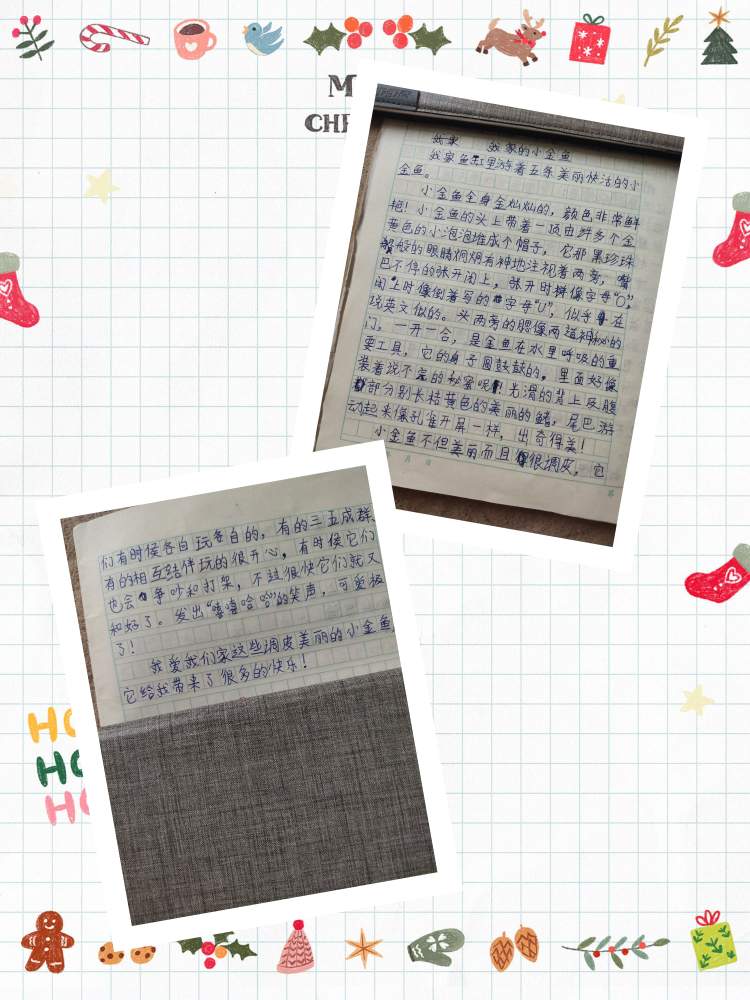 M
CHR
我家 我家的小金鱼
我家鱼缸里游着五条美丽快活的小
金鱼。
小金鱼全身金灿灿的，颜色非常鲜
艳！小金鱼的头上带着一顶由许多个金
黄色的小泡泡堆成个帽子，它那黑珍珠
般的眼睛炯炯有神地注视着两旁，嘴
巴不停的张开闭上，张开时像字母“O”，
闭上时像倒着写的字母“U”，似乎在
说英文似的。头两旁的腮像两道神秘的
门，一开一合，是金鱼在水里呼吸的重
要工具，它的身子圆鼓鼓的。里面好像
装着说不完的秘密呢！光滑的背上及腹
部分别长桔黄色的美丽的鳍，尾巴游
动起来像孔雀开屏一样，出奇得美！
小金鱼不但美丽而且很调皮，它
月 日
们有时候各自玩各自的，有的三五成群，
有的相互结伴玩的很开心，有时候它们
也会争吵和打架，不过很快它们就又
和好了。发出“嘻嘻哈哈”的笑声，可爱极
了！
我爱我们家这些调皮美丽的小金鱼，
它给我带来了很多的快乐！
HO
HO
HO